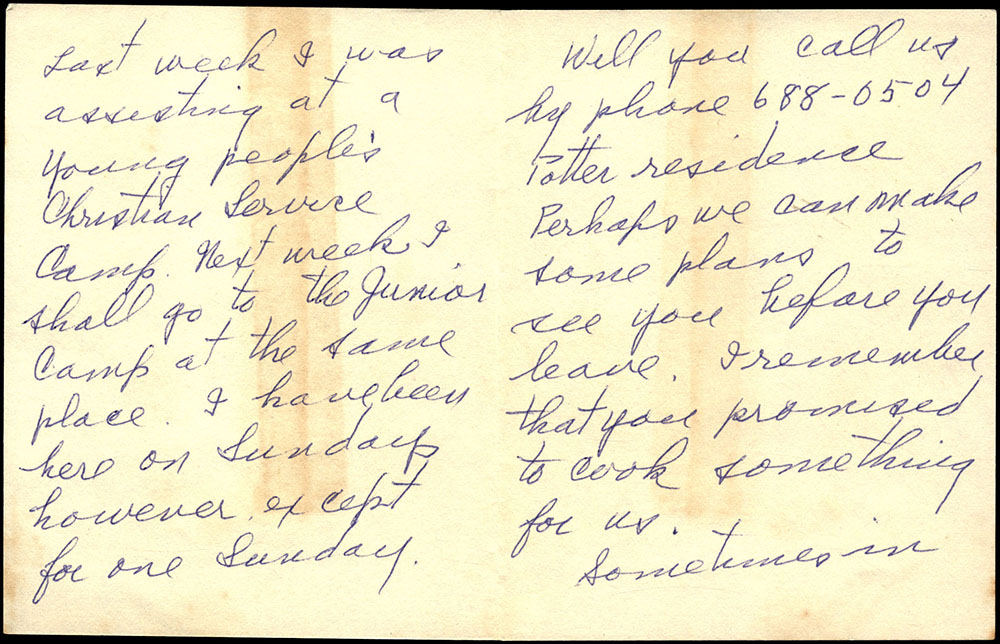 Last week I was
assisting at a
young people's
Christian Service
Camp. Next week I
shall go to the Junior
Camp at the same
place. I have been
here on Sundays
however except
for one Sunday.
Will you call us
by phone 688-0504
Potter residence
Perhaps we can make
some plans to
see you before you
leave. I remember
that you promised
to cook something
for us.
Sometimes in